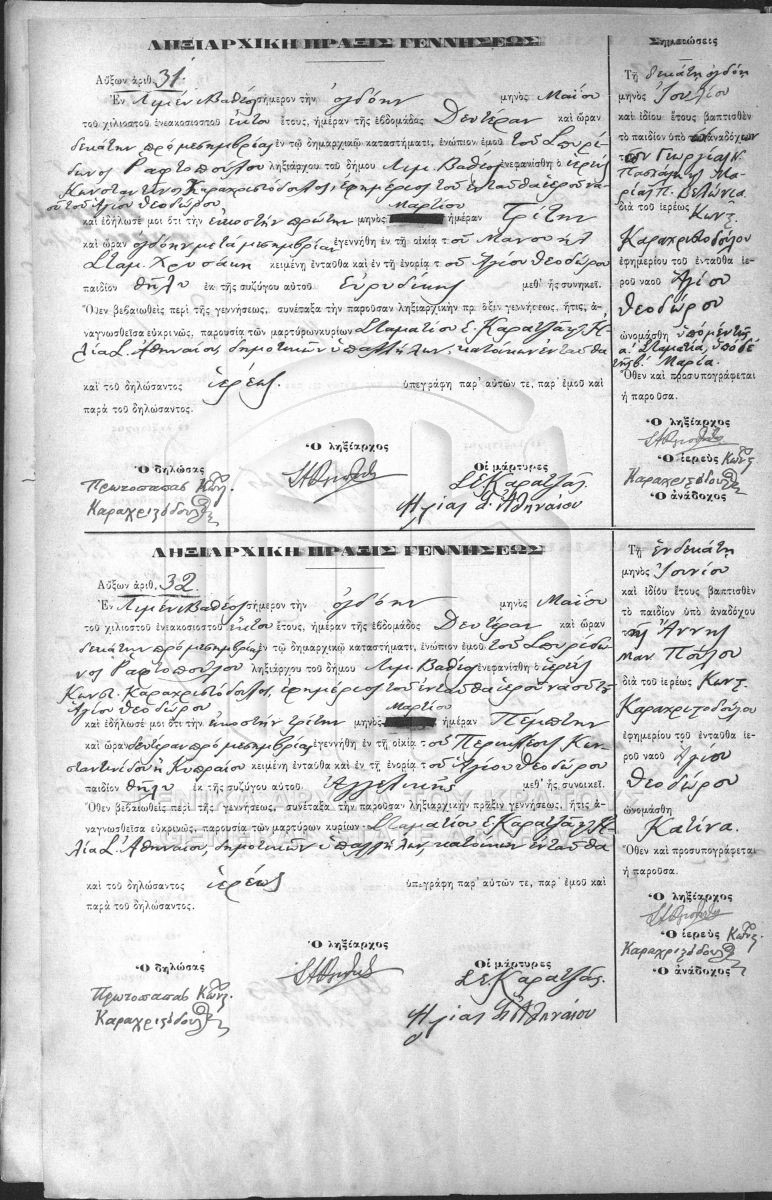 ΛΗΞΙΑΡΧΙΚΗ ΠΡΑΞΙΣ ΓΕΝΝΗΣΕΩΣ
Αὔξων ἀριθ. 31.
Ἐν Λιμένι Βαθέος σήμερον τὴν ὀγδόην μηνὸς Μαΐου
τοῦ χιλιοστοῦ ἐνεακοσιοστοῦ ἕκτου ἔτους, ἡμέραν τῆς ἑβδομάδος Δευτέραν καὶ ὥραν
δεκάτην πρὸ μεσημβρίας ἐν τῷ δημαρχικῷ καταστήματι, ἐνώπιον ἐμοῦ τοῦ Σπυρί-
δωνος Ραφτοπούλου ληξιάρχου τοῦ δήμου Λιμ. Βαθέος ἐνεφανίσθη ὁ ἱερεὺς
Κωνσταντῖνος Καραχριστόδουλος, ἐφημέριος τοῦ ἐνταῦθα ἱεροῦ να-
οῦ τοῦ Ἁγίου Θεοδώρου
Μαρτίου
καὶ ἐδήλωσέ μοι ὅτι τὴν εἰκοστὴν πρώτην μηνὸς ἡμέραν Τρίτην
καὶ ὥραν ὀγδόην μετὰ μεσημβρίαν ἐγεννήθη ἐν τῇ οἰκίᾳ τοῦ Μανουὴλ
Σταμ. Χρυσάκη κειμένῃ ἐνταῦθα καὶ ἐν τῇ ἐνορίᾳ τοῦ Ἁγίου Θεοδώρου
παιδίον θῆλυ ἐκ τῆς συζύγου αὐτοῦ Εὐρυδίκης μεθ' ἧς συνῳκεῖ.
Ὅθεν βεβαιωθεὶς περὶ τῆς γεννήσεως, συνέταξα τὴν παροῦσαν ληξιαρχικὴν πρᾶξιν γεννήσεως, ἥτις, ἀ-
ναγνωσθεῖσα εὐκρινῶς, παρουσίᾳ τῶν μαρτύρων κυρίων Σταματίου Ε. Καρατζᾶ, Ἠ-
λία Σ. Ἀθηναίου, δημοτικῶν ὑπαλλήλων, κατοίκων ἐνταῦθα
καὶ τοῦ δηλώσαντος ἱερέως ὑπεγράφη παρ' αὐτῶν τε, παρ' ἐμοῦ καὶ
παρὰ τοῦ δηλώσαντος.
Ὁ ληξίαρχος
Ὁ δηλώσας
Οἱ μάρτυρες
Πρωτοπαπᾶς Κων.
Καραχριστόδουλος
Σ. Ε. Καρατζᾶς.
Ἠλίας Σ. Ἀθηναίου
Σημειώσεις
Τῇ δεκάτῃ ὀγδόῃ
μηνὸς Ἰουλίου
καὶ ἰδίου ἔτους βαπτισθὲν
τὸ παιδίον ὑπὸ ἀναδόχων
τῶν Γεωργίας Ν.
Πασχάλη, Μα-
ρίας Π. Βελώνια
διὰ τοῦ ἱερέως Κωνστ.
Καραχριστοδούλου
ἐφημερίου τοῦ ἐνταῦθα ἱε-
ροῦ ναοῦ Ἁγίου
Θεοδώρου
ὠνομάσθη ὑπὸ μὲν τῆς
α. Σταματία, ὑπὸ δὲ
τῆς β. Μαρία.
Ὅθεν καὶ προσυπογράφεται
ἡ παροῦσα.
Ὁ ληξίαρχος
Ὁ ἱερεὺς Κων.
Καραχριστόδουλος
Ὁ ἀνάδοχος
ΛΗΞΙΑΡΧΙΚΗ ΠΡΑΞΙΣ ΓΕΝΝΗΣΕΩΣ
Αὔξων ἀριθ. 32
Ἐν Λιμένι Βαθέος σήμερον τὴν ὀγδόην μηνὸς Μαΐου
τοῦ χιλιοστοῦ ἐνεακοσιοστοῦ ἕκτου ἔτους, ἡμέραν τῆς ἑβδομάδος Δευτέραν καὶ ὥραν
δεκάτην πρὸ μεσημβρίας ἐν τῷ δημαρχικῷ καταστήματι, ἐνώπιον ἐμοῦ τοῦ Σπυρίδω-
νος Ραφτοπούλου ληξιάρχου τοῦ δήμου Λιμ. Βαθέος ἐνεφανίσθη ὁ ἱερεὺς
Κωνστ. Καραχριστόδουλος, ἐφημέριος τοῦ ἐνταῦθα ἱεροῦ ναοῦ τοῦ
Ἁγίου Θεοδώρου
Μαρτίου
καὶ ἐδήλωσέ μοι ὅτι τὴν εἰκοστὴν τρίτην μηνὸς ἡμέραν Πέμπτην
καὶ ὥραν δευτέραν πρὸ μεσημβρίας ἐγεννήθη ἐν τῇ οἰκίᾳ τοῦ Περικλέους Κων-
σταντινίδου ἢ Κυπραίου κειμένῃ ἐνταῦθα καὶ ἐν τῇ ἐνορίᾳ τοῦ Ἁγίου Θεοδώρου
παιδίον θῆλυ ἐκ τῆς συζύγου αὐτοῦ Ἀγγελικῆς μεθ' ἧς συνοικεῖ.
Ὅθεν βεβαιωθεὶς περὶ τῆς γεννήσεως, συνέταξα τὴν παροῦσαν ληξιαρχικὴν πρᾶξιν γεννήσεως, ἥτις ἀ-
ναγνωσθεῖσα εὐκρινῶς, παρουσίᾳ τῶν μαρτύρων κυρίων Σταματίου Ε. Καρατζᾶ, Ἠ-
λία Σ. Ἀθηναίου, δημοτικῶν ὑπαλλήλων, κατοίκων ἐνταῦθα
καὶ τοῦ δηλώσαντος ἱερέως ὑπεγράφη παρ' αὐτῶν τε, παρ' ἐμοῦ καὶ
παρὰ τοῦ δηλώσαντος.
Ὁ ληξίαρχος
Ὁ δηλώσας
Οἱ μάρτυρες
Πρωτοπαπᾶς Κων.
Καραχριστόδουλος
Σ. Ε. Καρατζᾶς.
Ἠλίας Σ. Ἀθηναίου
Τῇ ἑνδεκάτῃ
μηνὸς Ἰουνίου
καὶ ἰδίου ἔτους βαπτισθὲν
τὸ παιδίον ὑπὸ ἀναδόχου
τῆς Ἄννης
Μαν. Πούλου
διὰ τοῦ ἱερέως Κωνστ.
Καραχριστοδούλου
ἐφημερίου τοῦ ἐνταῦθα ἱε-
ροῦ ναοῦ Ἁγίου
Θεοδώρου
ὠνομάσθη
Κατίνα.
Ὅθεν καὶ προσυπογράφεται
ἡ παροῦσα.
Ὁ ληξίαρχος
Ὁ ἱερεὺς Κων.
Καραχριστόδουλος
Ὁ ἀνάδοχος